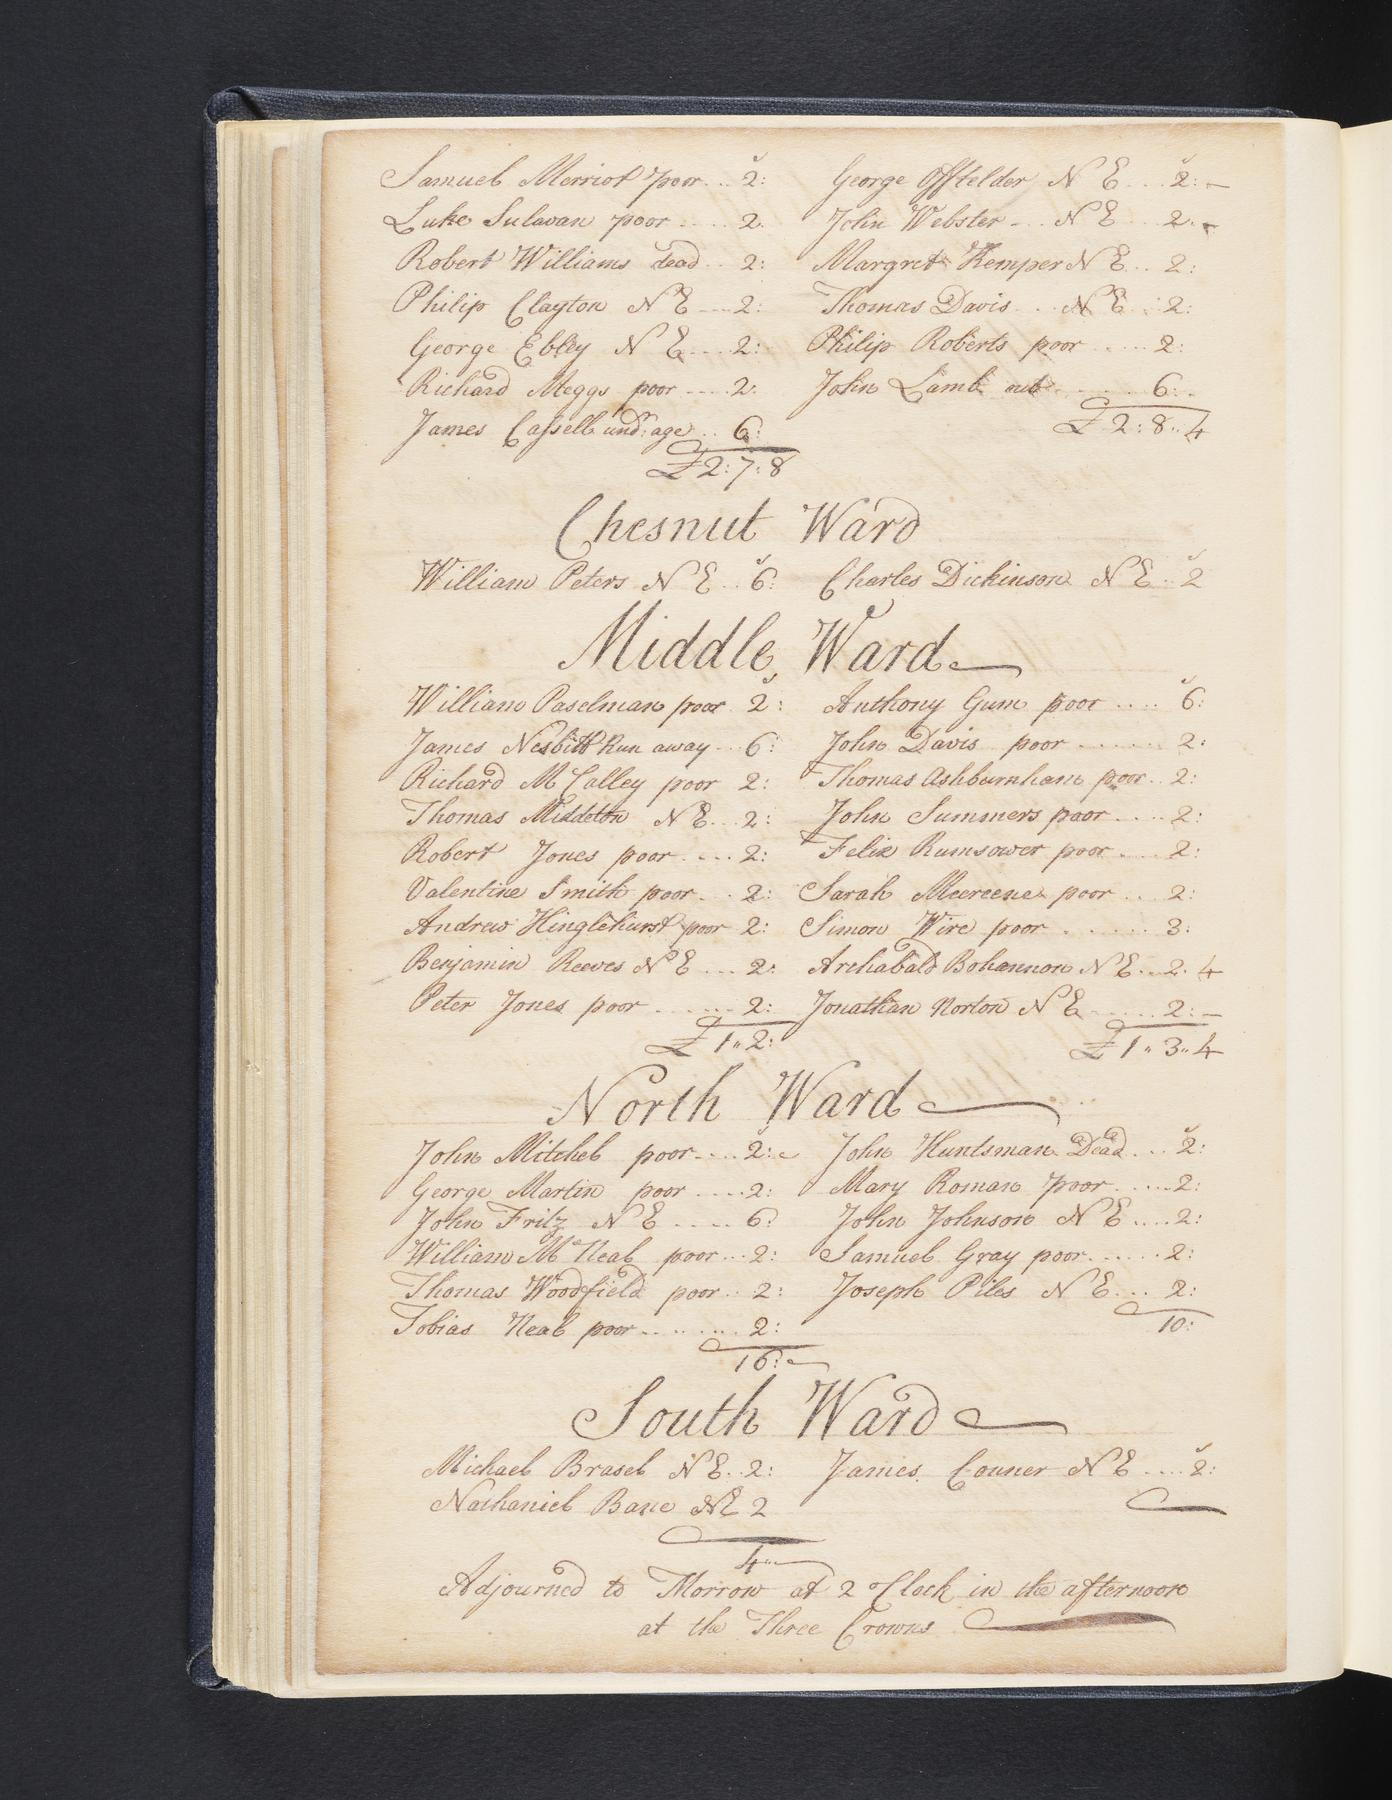 Samuel Merriot poor .. 2:
Luke Sulavan poor .... 2.
Robert Williams dead .. 2:
Philip Clayton N E .... 2:
George Ebley N E .... 2:
Richard Meggs poor .... 2.
James Cassell undr: age .. 6:
£2:7:8
George Offtelder N E ... 2:-
John Webster ... N E ... 2.-
Margret Kemper N E .. 2:
Thomas Davis ... N E .. 2:
Philip Roberts poor ..... 2:
John Lamb ..... 6:-
£2:8..4
Chesnut Ward
William Peters N E .. 6:
Charles Dickinson N E .. 2
Middle Ward
William Paselman poor 2:
James Nesbitt Run away ... 6:
Richard McCalley poor 2:
Thomas Middelton N E .. 2:
Robert Jones poor .... 2:
Valentine Smith poor .. 2:
Andrew Hinglehurst poor 2:
Benjamin Reeves N E .... 2:
Peter Jones poor ...... 2:
£1..2:
Anthony Gum poor .... 6:
John Davis poor ....... 2:
Thomas Ashburnham poor .. 2:
John Summers poor .... 2:
Felix Rumsower poor .... 2:
Sarah Meereene poor ... 2:
Simon Wire poor ...... 3:
Archabald Bohannon N E .. 2. 4
Jonathan Norton N E ..... 2:-
£1..3..4
North Ward
John Mitchel poor .... 2:-
George Martin poor ..... 2:
John Fritz N E ..... 6:
William McNeal poor ... 2:
Thomas Woodfield poor .. 2:
Tobias Neal poor ....... 2:
16:-
John Huntsman Dead ... 2:
Mary Roman poor ..... 2:
John Johnson N E .... 2:
Samuel Gray poor ..... 2:
Joseph Piles N E ... 2:
10:
South Ward
Michael Brasel N E .. 2:
Nathaniel Bane NE 2
4..-
James Conner N E .... 2:
Adjourned to Morrow at 2 oClock in the afternoon
at the Three Crowns